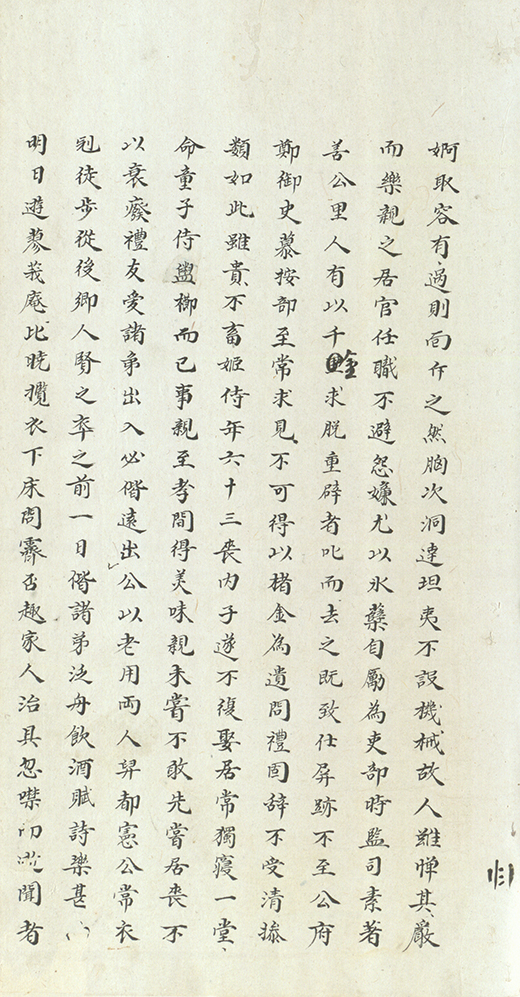 婀取容有過則面斥之然胸次洞達坦夷不設機械故人雖憚其嚴
而樂親之居官任職不避怨嫌尤以氷蘗自勵為吏部時監司素著
善公里人有以千金求脱重辟者叱而去之既致仕屏跡不至公府
鄭御史慕按部至常求見不可得以楮金為遺問禮固辞不受清操
類如此雖貴不畜姬侍年六十三丧内子遂不復娶居常獨寢一堂
命童子侍盥櫛而已事親至孝間得美味親未嘗不敢先嘗居丧不
以衰癈禮友爱諸弟出入必偕遠出公以老用両人舁都憲公常衣
冠徒步從後鄉人賢之卒之前一日偕諸弟泛舟飲酒賦詩樂甚
明日遊蓼莪庵比晩攬衣下床問霽否趣家人治具忽噤聞者